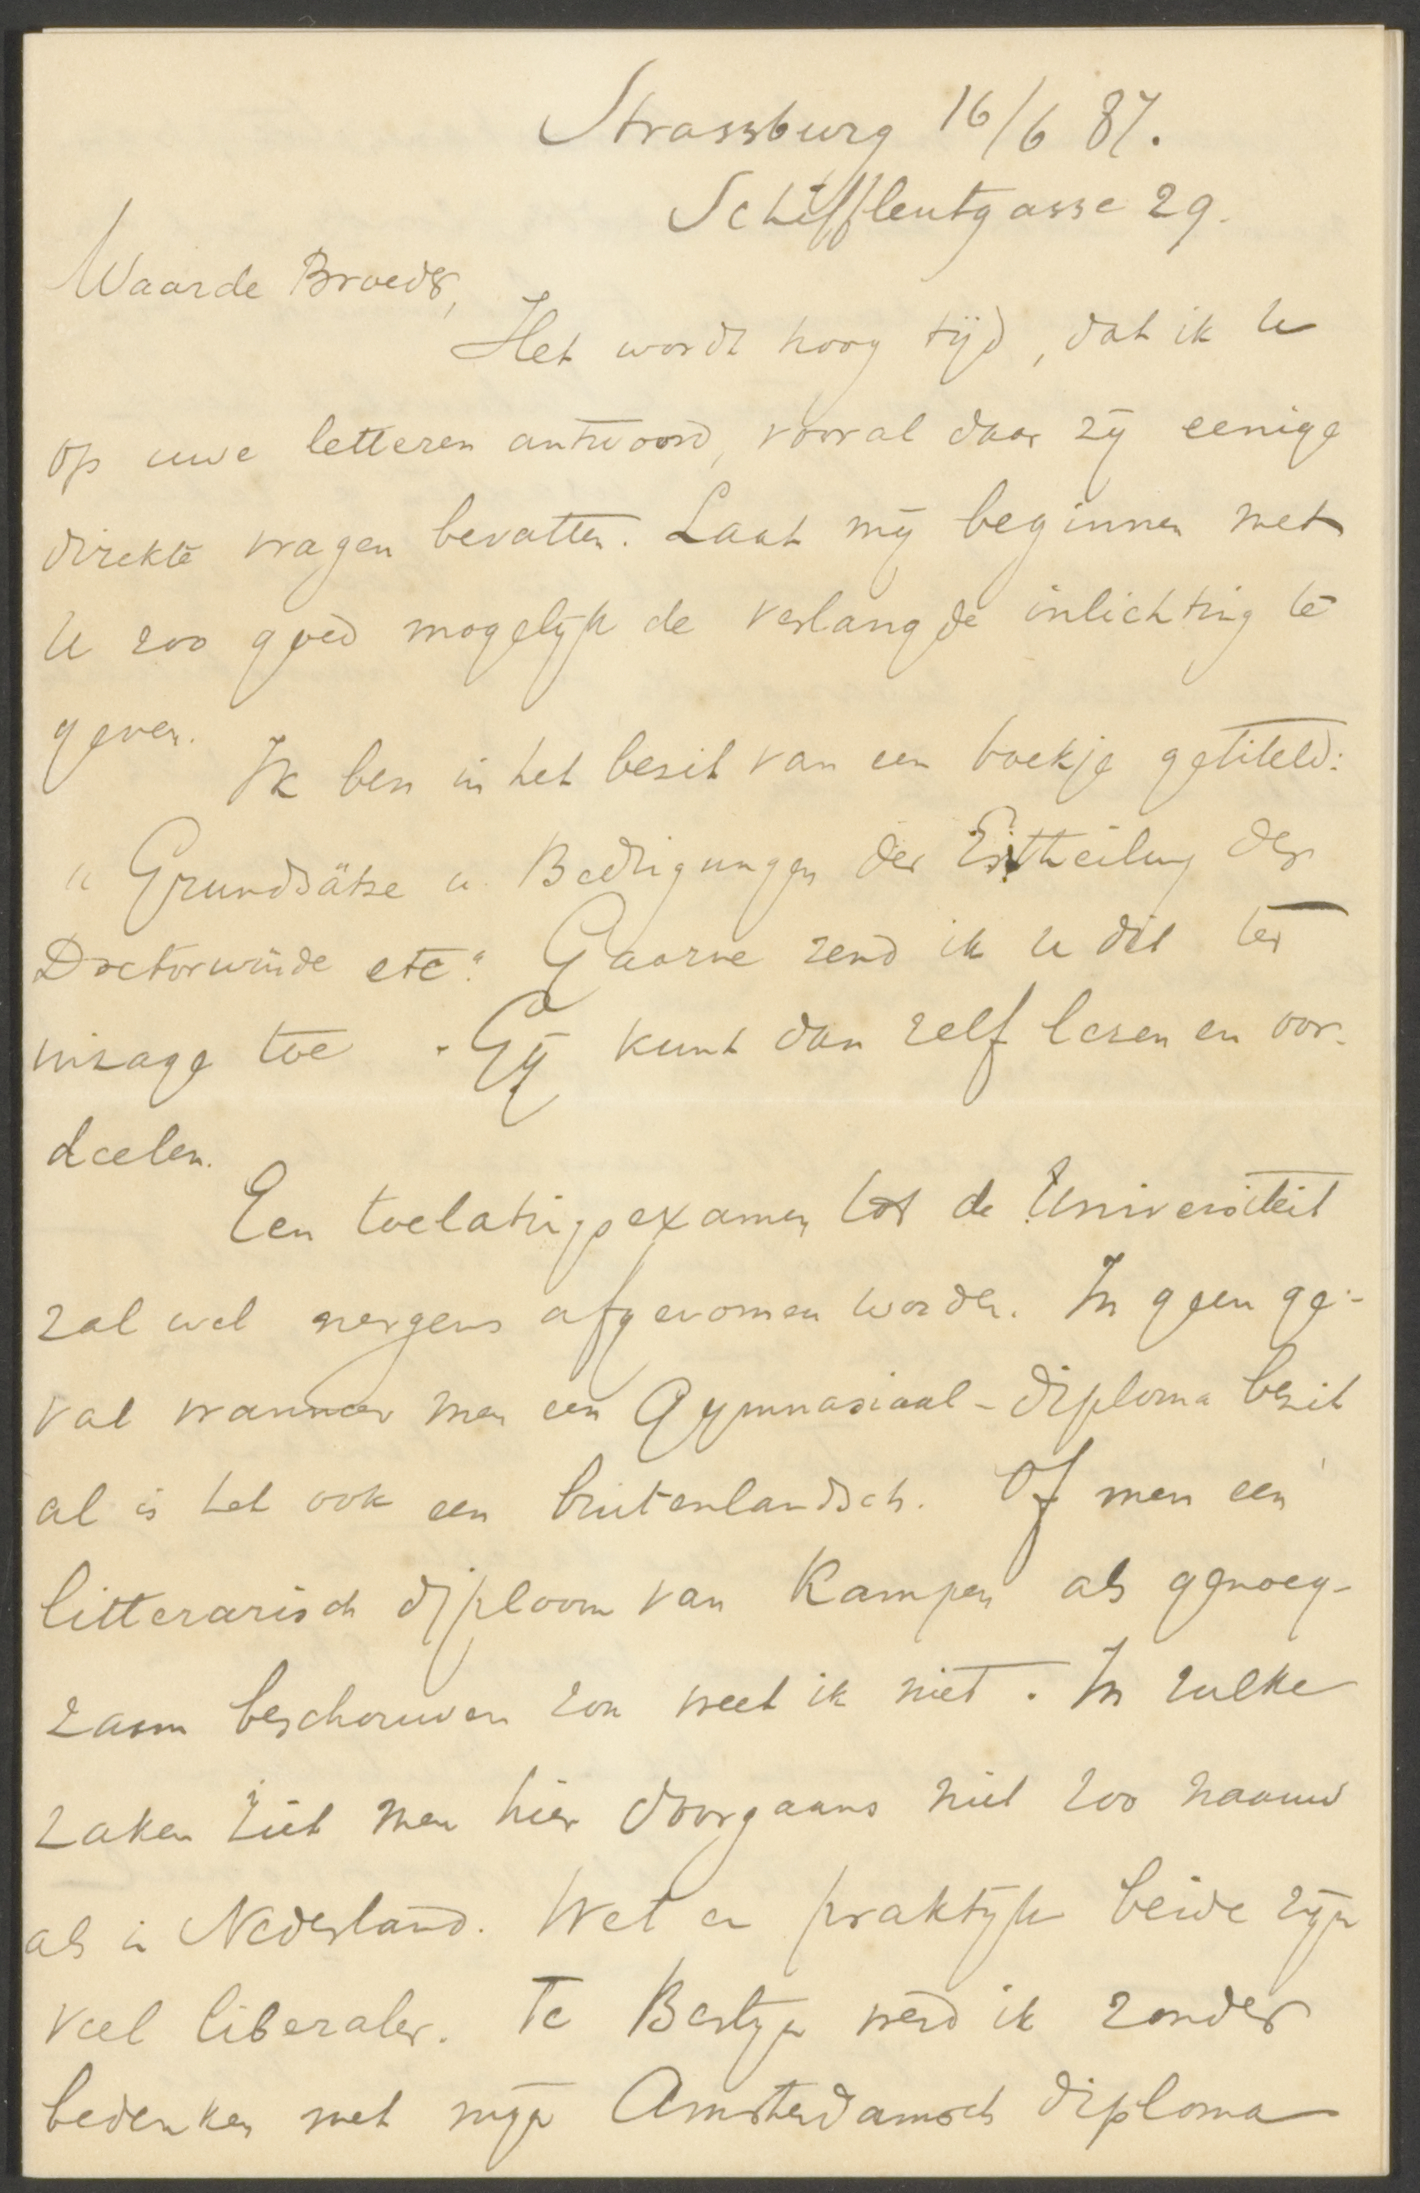 Strassburg 16/6 87.
Schiffleutgasse 29.
Waarde Broeder,
Het wordt hoog tijd, dat ik U
op uwe letteren antwoord, vooral daar zij eenige
direkte vragen bevatten. Laat mij beginnen met
U zoo goed mogelijk de verlangde inlichting te
geven.
Ik ben in het bezit van een boekje getiteld:
"Grundsätze u. Bedigungen der Ertheilung der
Doctorwürde etc." Gaarne zend ik U dit ter
visage toe. Gij kunt dan zelf lezen en oor-
deelen.
Een toelatingsexamen tot de Universiteit
zal wel nergens afgenomen worden. In geen ge-
val wanneer men een Gymnasiaal-diploma bezit
al is het ook een buitenlandsch. Of men een
litterarisch diploom van Kampen als genoeg-
zaam beschouwen zou weet ik niet. In zulke
zaken ziet men hier doorgaans niet zoo naauw
als in Nederland. Wet en praktijk beide zijn
veel liberaler. Te Berlijn werd ik zonder
bedenken met mijn Amsterdamsch diploma